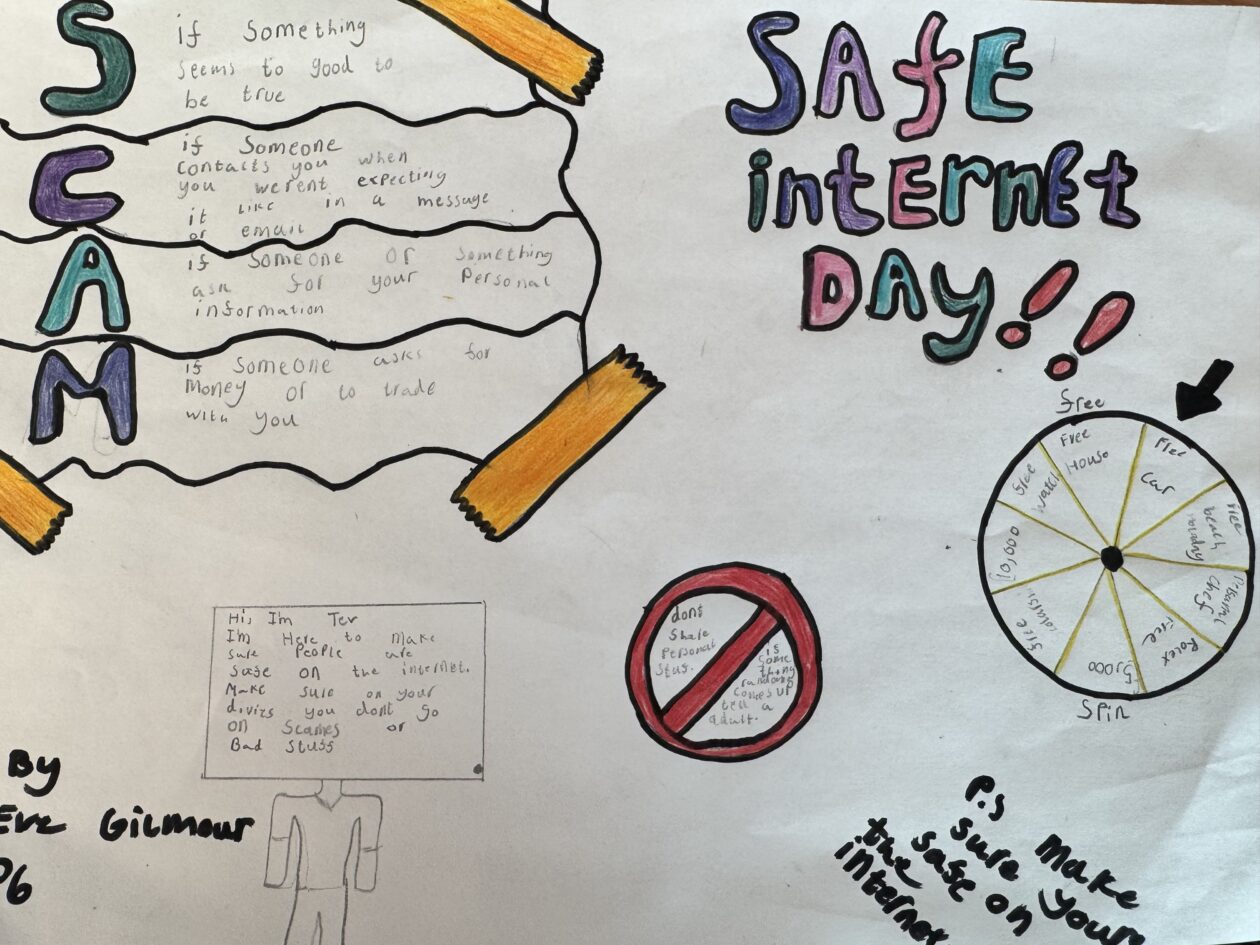 S
if Something
seems to good to
be true
C
if Someone
contacts you when
you werent expecting
it like in a message
or email
A
if someone or something
ask for your Personal
information
M
if someone asks for
Money or to trade
with you
SAfE
intErnEt
DAy!!
free
Free House
Free Car
Free
Free Rolex
5,000
10,000
free watch
Spin
dont
share
Personal
stuf.
if
some
thing
random
comes up
tell a
adult.
Hi, Im Tev
Im Here to make
sure People are
safe on the internet.
Make sure on your
divixs you dont go
on scames or
Bad stuff
By
Eve Gilmour
P6
P.S Make
sure your
safe on
the
internet